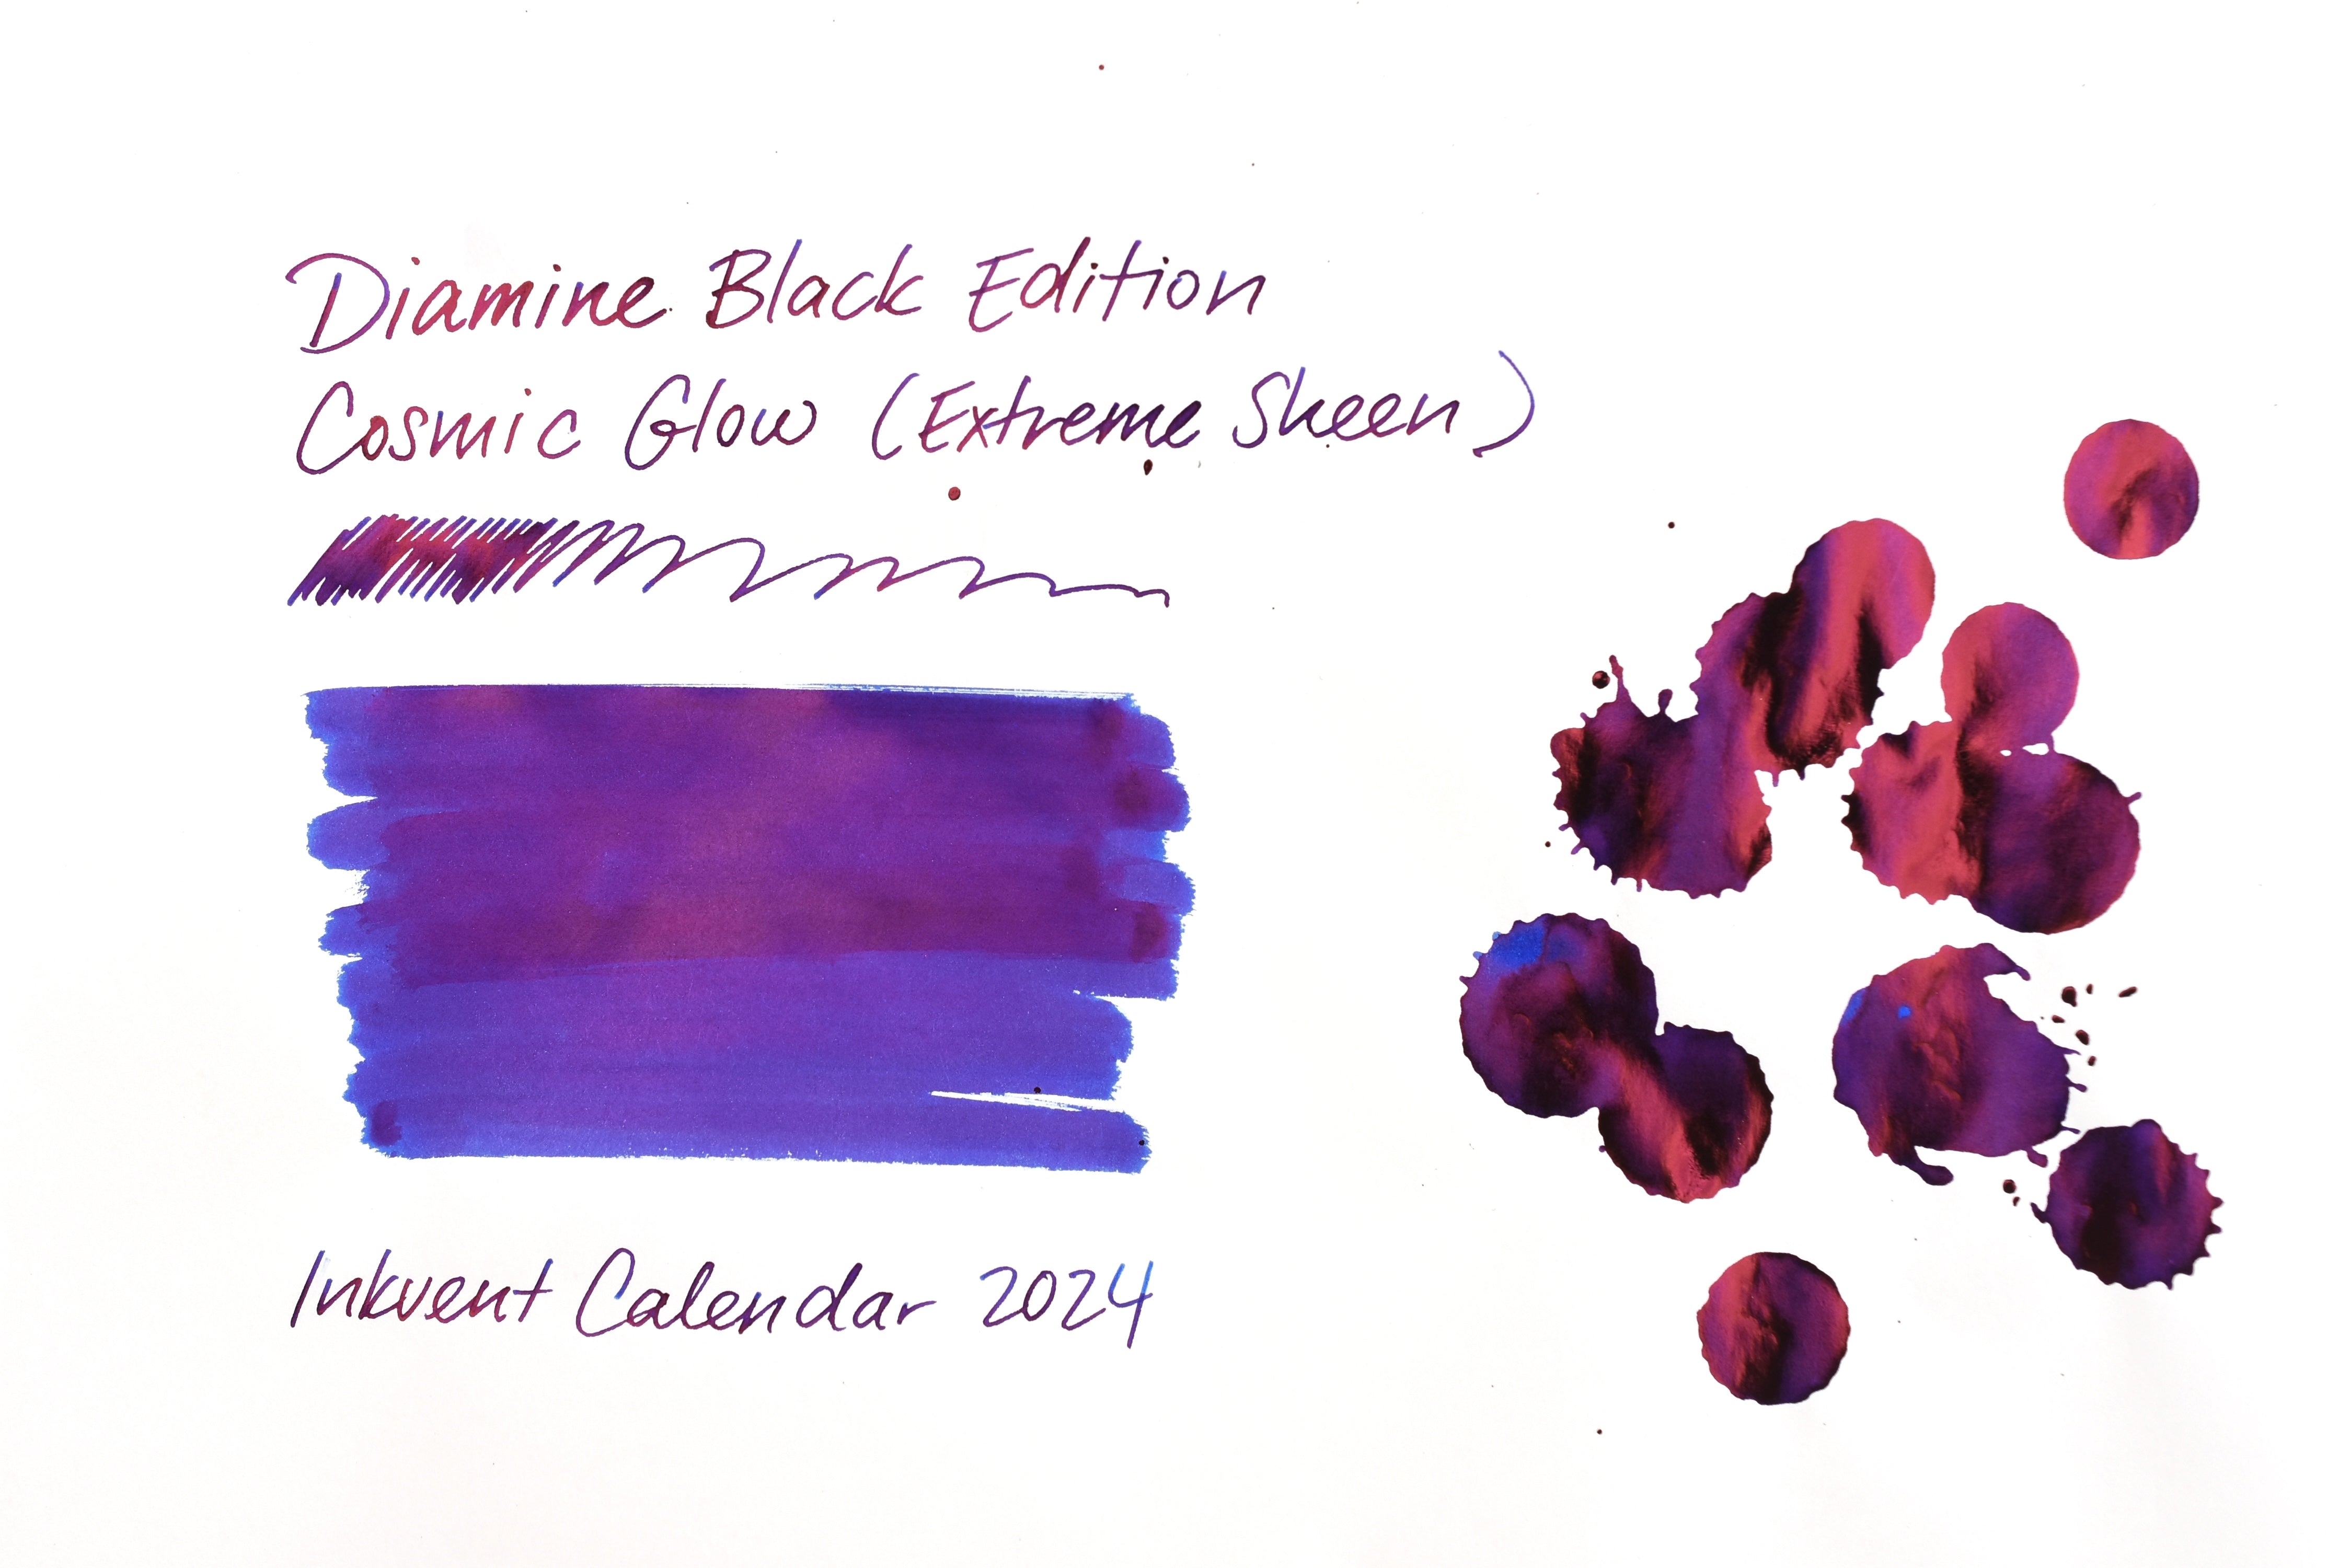 Diamine Black Edition
Cosmic Glow (Extreme Sheen)
Inkvent Calendar 2024